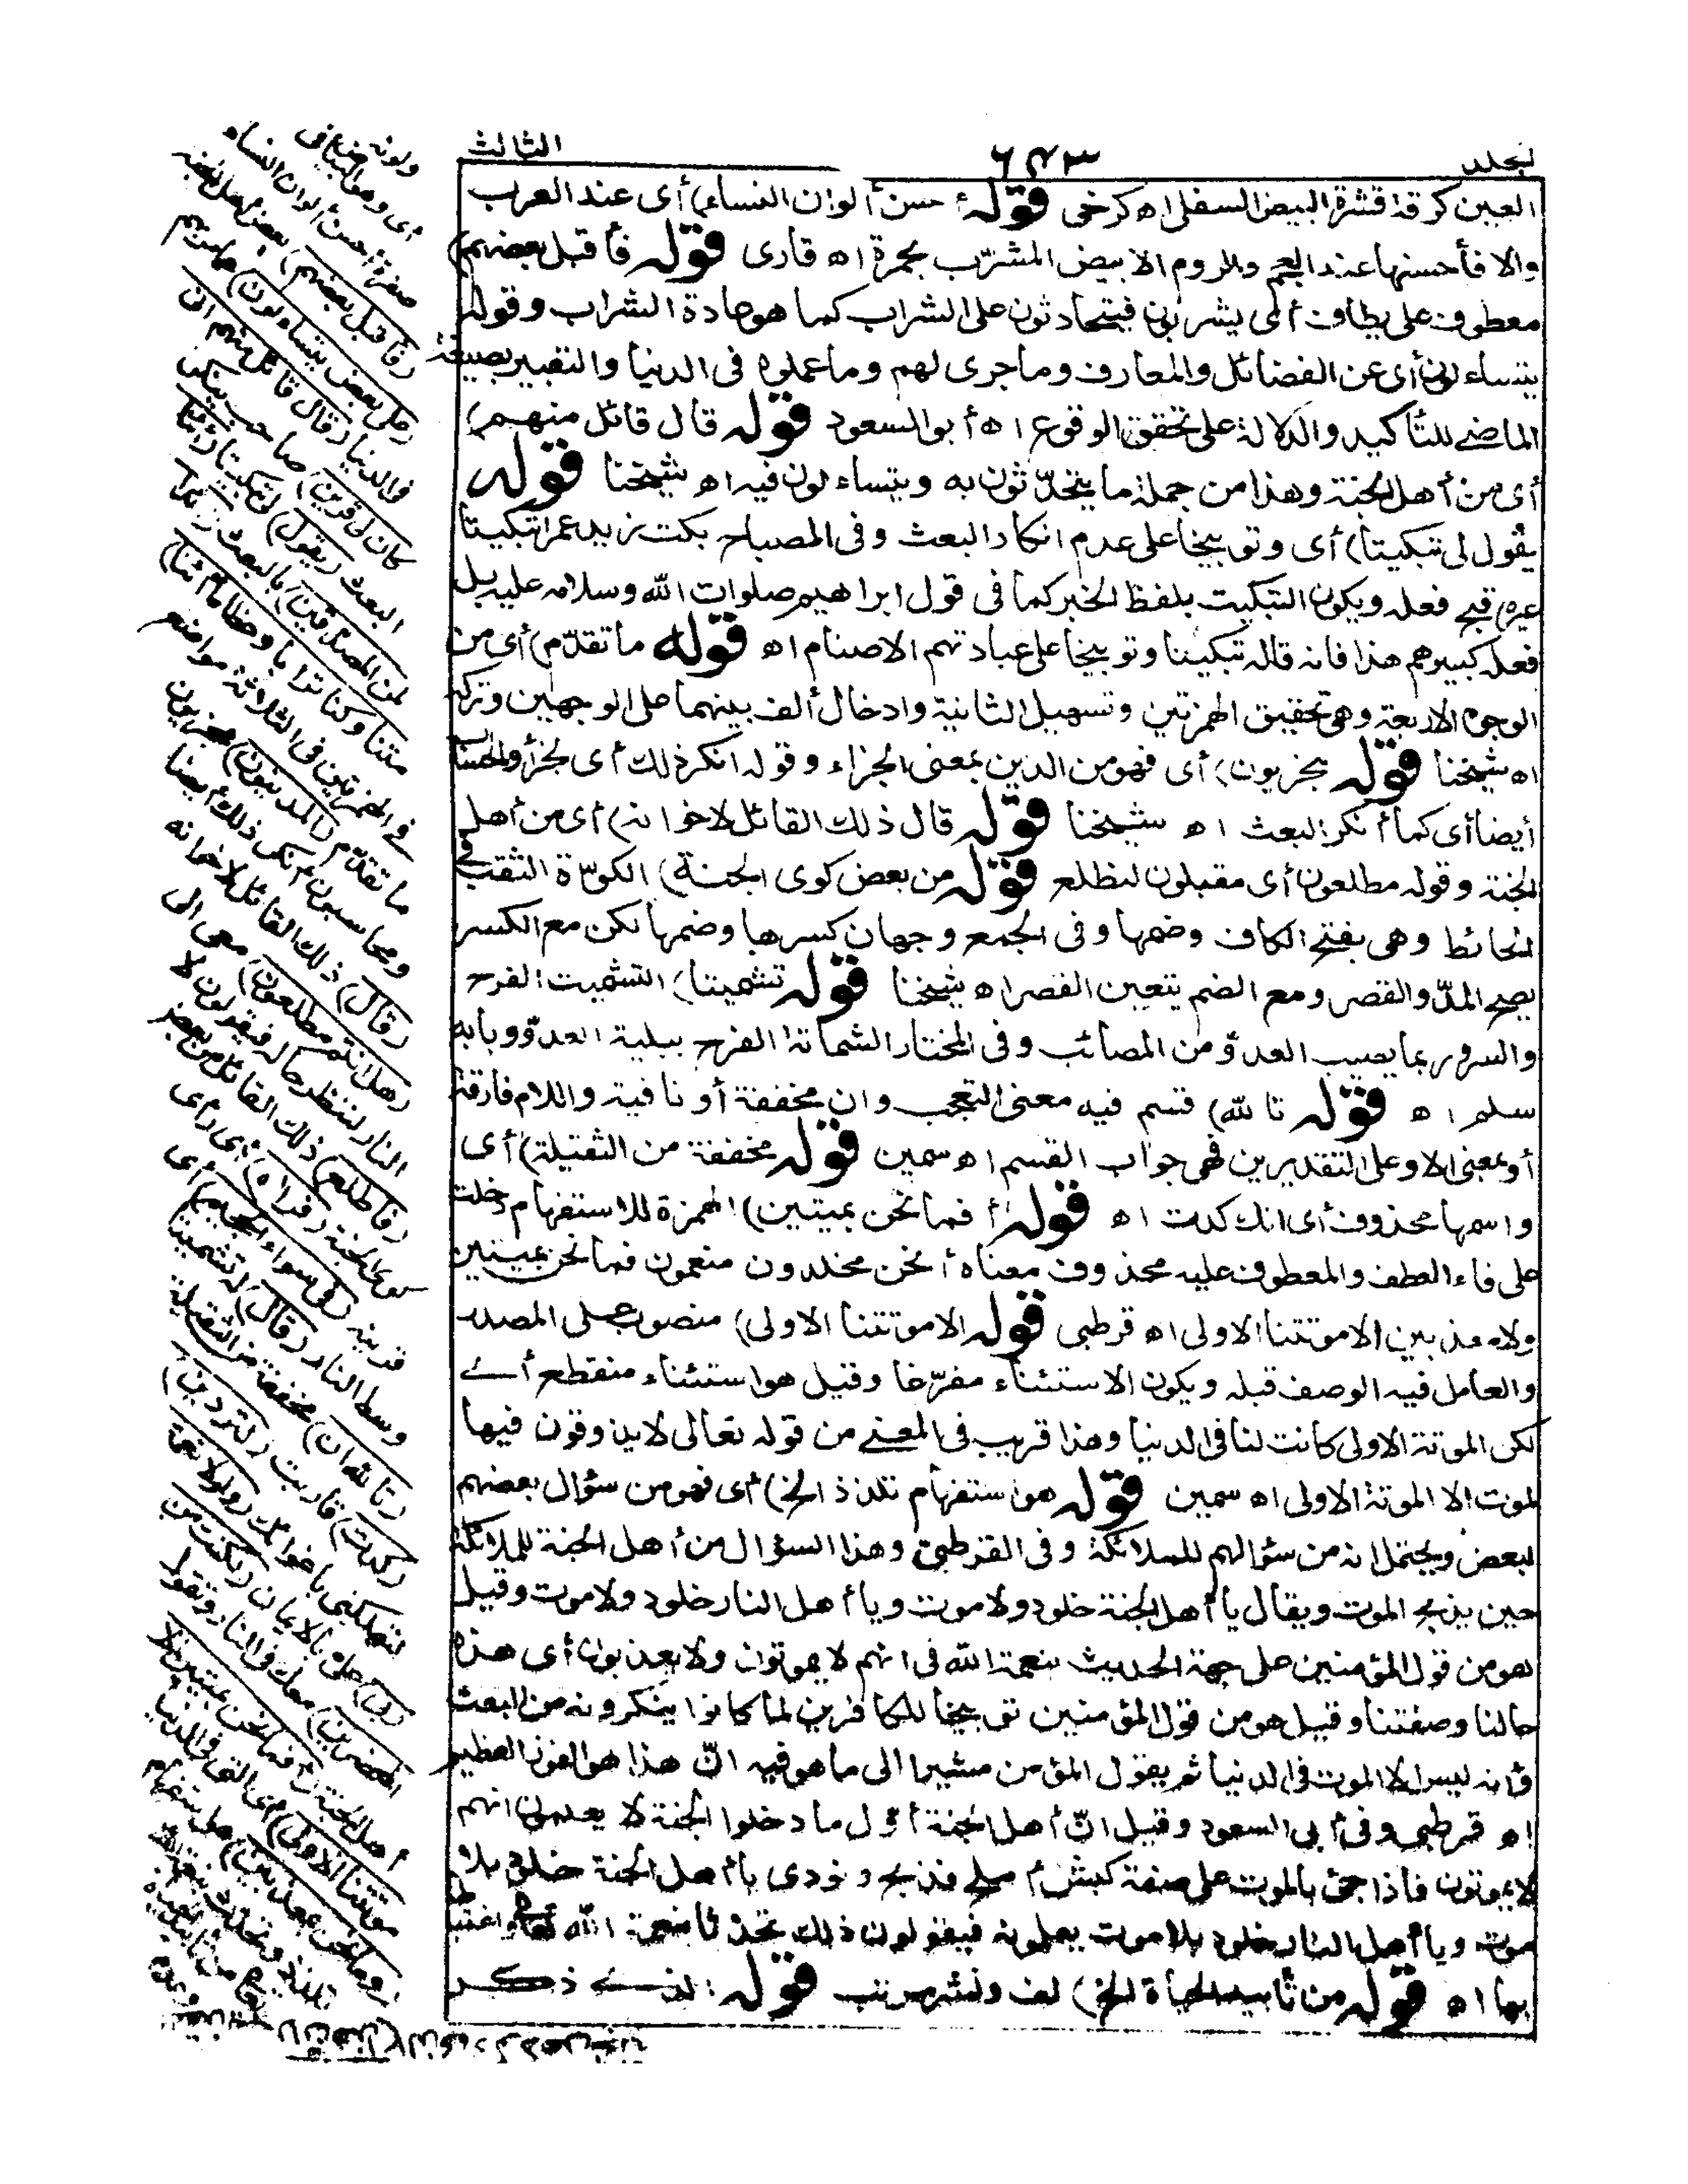 لجلد ٦٤٣ الثالث
العين كرقة قشرة البيض السفلى اه كرخى قوله أحسن ألوان النساء) أى عند العرب
والا فأحسنها عند العجم والروم الابيض المشرّب بحمرة اه قارى قوله فأقبل بعضهم)
معطوف على يطاف أى يشربون فيتحادثون على الشراب كما هو عادة الشراب وقوله
يتساءلون أى عن الفضائل والمعارف وما جرى لهم وما عملوه فى الدنيا والتعبير بصيغة
الماضى للتأكيد والدلالة على تحقق الوقوع اه أبو السعود قوله قال قائل منهم)
أى من أهل الجنة وهذا من جملة ما يتحدّثون به ويتساءلون فيه اه شيخنا قوله
يقول لى تبكيتا) أى وتوبيخا على عدم انكار البعث وفى المصباح بكت زيد عمرا تبكيتا
عيره قبح فعله ويكون التبكيت بلفظ الخبر كما فى قول ابراهيم صلوات الله وسلامه عليه بل
فعله كبيرهم هذا فانه قاله تبكيتا وتوبيخا على عبادتهم الاصنام اه قوله ما تقدّم) أى من
الوجوه الاربعة وهى تحقيق الهمزتين وتسهيل الثانية وادخال ألف بينهما على الوجهين وتركه
اه شيخنا قوله مجزيون) أى فهو من الدين بمعنى الجزاء وقوله انكر ذلك أى الجزاء والحساب
أيضا أى كما أنكر البعث اه شيخنا قوله قال ذلك القائل لاخوانه) أى من أهل
الجنة وقوله مطلعون أى مقبلون لنطلع قوله من بعض كوى الجنة) الكوّة الثقب فى
الحائط وهى بفتح الكاف وضمها وفى الجمع وجهان كسرها وضمها لكن مع الكسر
يصح المدّ والقصر ومع الضم يتعين القصر اه شيخنا قوله تشميتا) التشميت الفرح
والسرور بما يصيب العدوّ من المصائب وفى المختار الشماتة الفرح ببلية العدوّ وبابه
سلم اه قوله تالله) قسم فيه معنى التعجب وان مخففة أو نافية واللام فارقة
أو بمعنى الا وعلى التقديرين فهى جواب القسم اه سمين قوله مخففة من الثقيلة) أى
واسمها محذوف أى انك كدت اه قوله أفما نحن بميتين) الهمزة للاستفهام دخلت
على فاء العطف والمعطوف عليه محذوف معناه أنحن مخلدون منعمون فما نحن بميتين
ولا معذبين الا موتتنا الاولى اه قرطبى قوله الا موتتنا الاولى) منصوب على المصدر
والعامل فيه الوصف قبله ويكون الاستثناء مفرّغا وقيل هو استثناء منقطع أى
لكن الموتة الاولى كانت لنا فى الدنيا وهذا قريب فى المعنى من قوله تعالى لا يذوقون فيها
الموت الا الموتة الاولى اه سمين قوله هو استفهام تلذذ الخ) أى فهو من سؤال بعضهم
لبعض ويحتمل انه من سؤالهم للملائكة وفى القرطبى وهذا السؤال من أهل الجنة للملائكة
حين يذبح الموت ويقال يا أهل الجنة خلود ولا موت ويا أهل النار خلود ولا موت وقيل
هو من قول المؤمنين على جهة الحديث بنعمة الله فى انهم لا يموتون ولا يعذبون أى هذه
حالنا وصفتنا وقيل هو من قول المؤمنين توبيخا للكافرين لما كانوا ينكرونه من البعث
وأنه ليس الا الموت فى الدنيا ثم يقول المؤمن مشيرا الى ما هو فيه انّ هذا لهو الفوز العظيم
اه قرطبى وفى أبى السعود وقيل انّ أهل الجنة أوّل ما دخلوا الجنة لا يعلمون انهم
لا يموتون فاذا جئ بالموت على صفة كبش أملح فذبح ونودى يا أهل الجنة خلود بلا
موت ويا أهل النار خلود بلا موت يعلمونه فيقولون ذلك تحدّثا بنعمة الله تعالى واغتباطا
بها اه قوله من تأبيد الحياة الخ) لف ونشر مرتب قوله الذى ذكر
ولونه
أى وهو البياض فى
صفرة أحسن ألوان النساء
(فأقبل بعضهم) بعض أهل الجنة
(على بعض يتساءلون) عما مر بهم
فى الدنيا (قال قائل منهم انى
كان لى قرين) صاحب ينكر
البعث (يقول) لى تبكيتا (أئنك
لمن المصدّقين) بالبعث (أئذا
متنا وكنا ترابا وعظاما أئنا)
فى الهمزتين فى الثلاثة مواضع
ما تقدّم (لمدينون) مجزيون
ومحاسبون أنكر ذلك أيضا
(قال) ذلك القائل لاخوانه
(هل أنتم مطلعون) معى الى
النار لننظر حاله فيقولون لا
(فاطلع) ذلك القائل من بعض
كوى الجنة (فرآه) أى رأى
قرينه (فى سواء الجحيم) أى
وسط النار (قال) له تشميتا
(تالله ان) مخففة من الثقيلة
(كدت) قاربت (لتردين)
لتهلكنى باغوائك (ولولا نعمة
ربى) على بالايمان (لكنت من
المحضرين) معك فى النار وتقول
أهل الجنة (أفما نحن بميتين الا
موتتنا الاولى) أى التى فى الدنيا
(وما نحن بمعذبين) هو استفهام
تلذذ وتحدّث بنعمة الله